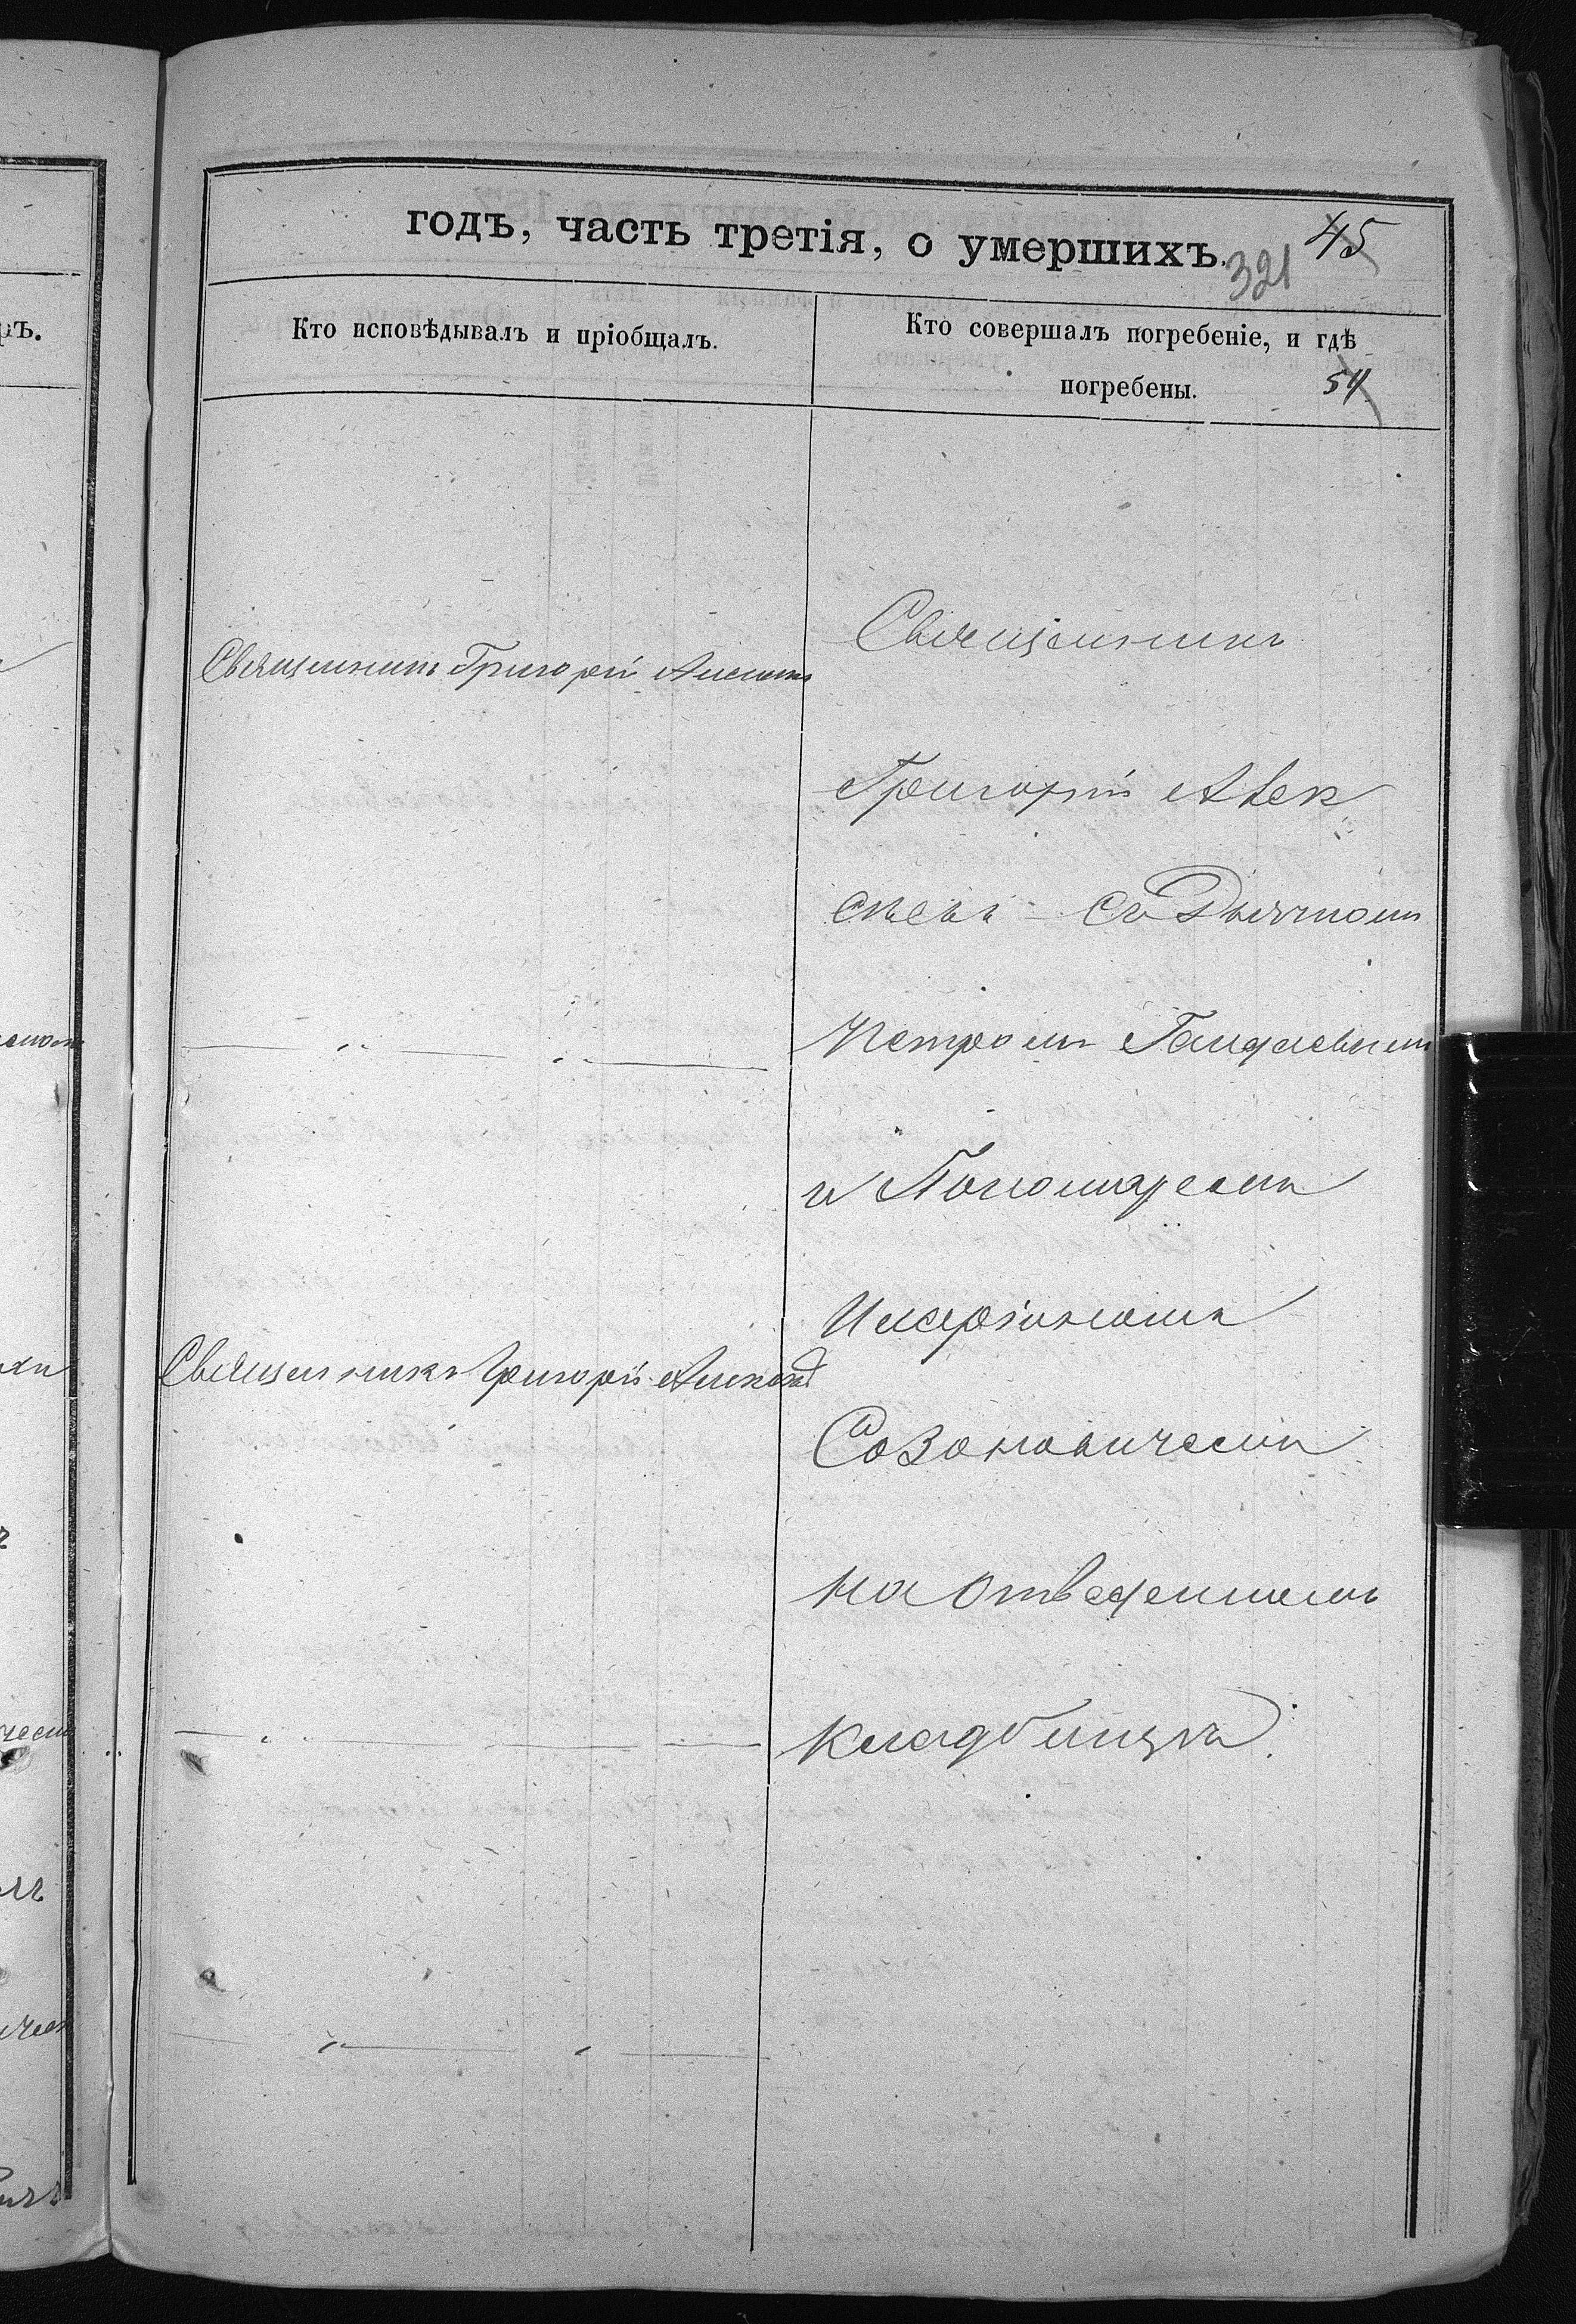 годъ, часть третія, о умершихъ.
45
321
Кто исповѣдывалъ и пріобщалъ.
Кто совершалъ погребеніе, и гдѣ
погребены.
54
Священникъ Григорій
Священникъ Григорій
Священникъ
Григорій Алек
сѣевъ съ Дьячкомъ
Петромъ
и Пономаремъ
Иларіономъ
Созоновичемъ
на отведенномъ
кладбищѣ.